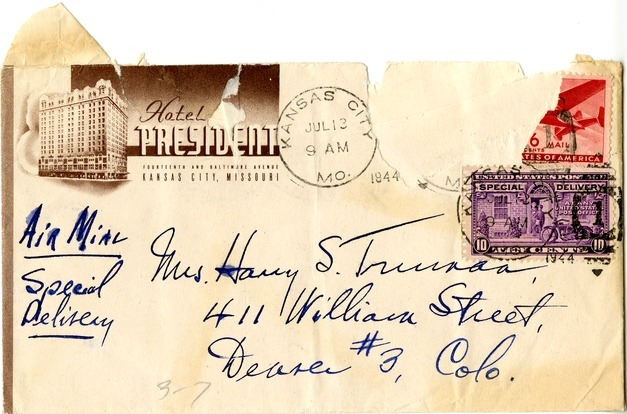 Hotel
PRESIDENT
FOURTEENTH AND BALTIMORE AVENUE
KANSAS CITY, MISSOURI
KANSAS CITY
JUL 13
9 AM
MO.
1944
6 MAIL
CENTS
TES OF AMERICA
UNITED STATES POSTAGE
SPECIAL DELIVERY
AT ANY
UNITED STATES
POST OFFICE
10 TEN CENTS 10
1944
Air Mial
Special
Delivery
Mrs. Harry S. Truman,
411 William Street,
Denver #3, Colo.
3-7